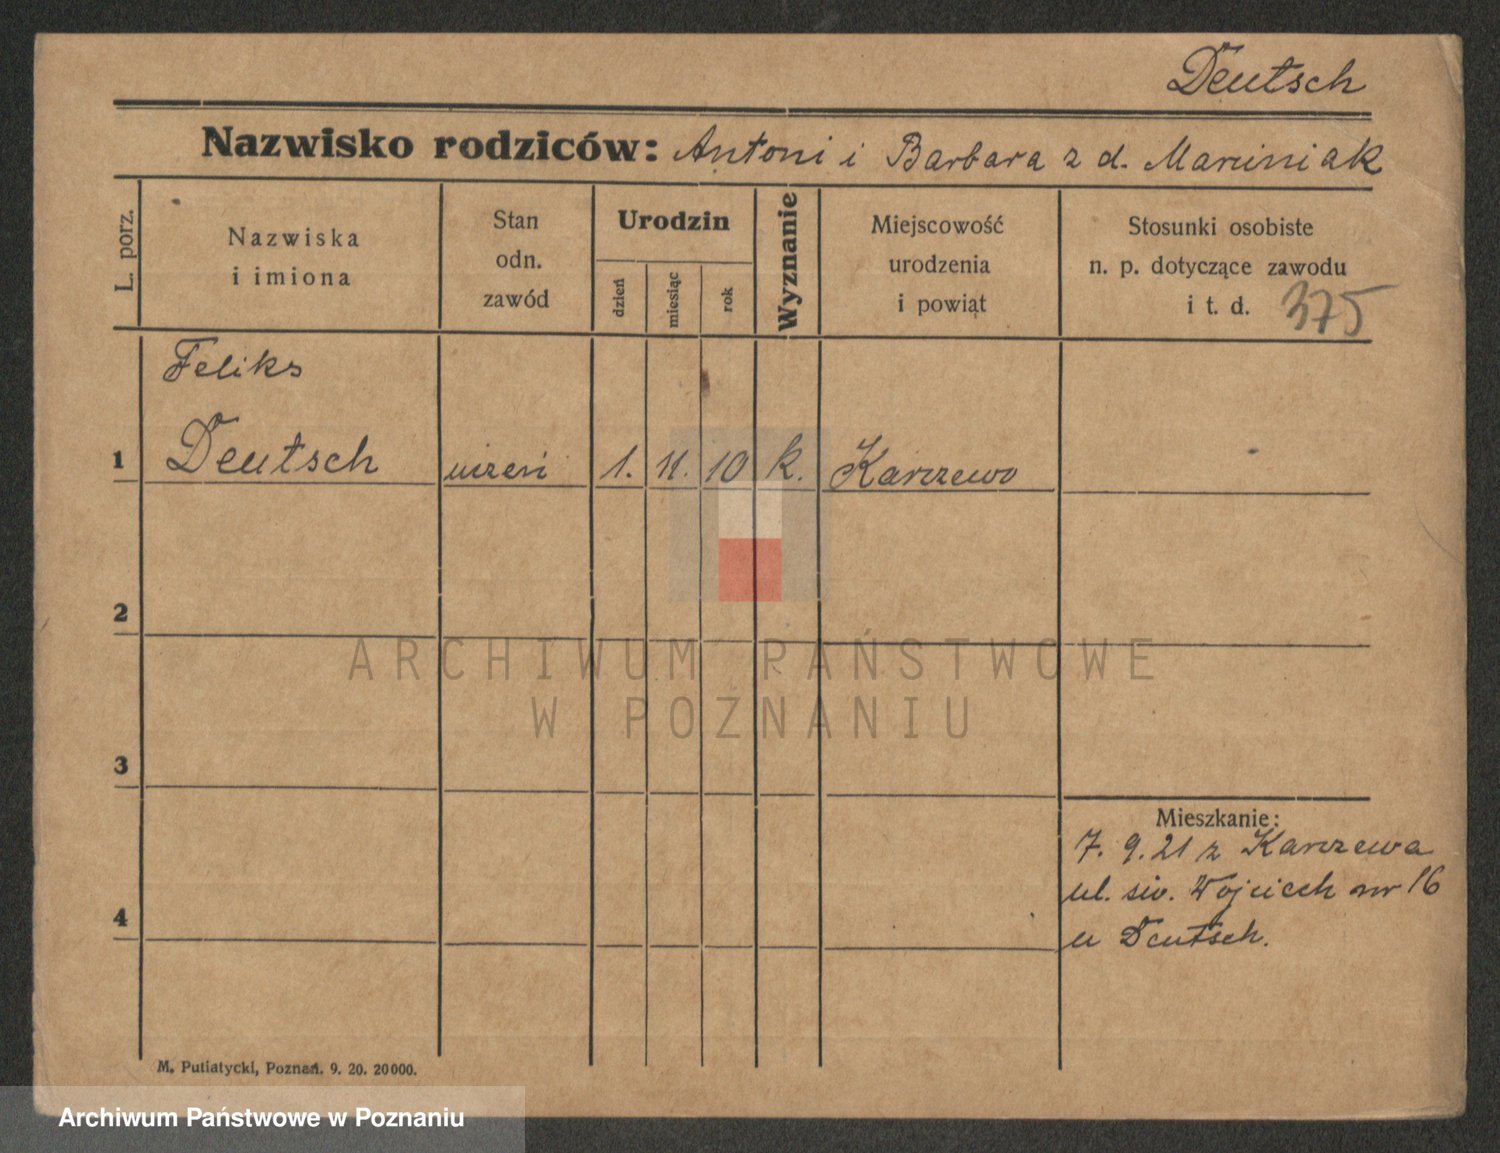 Deutsch
Nazwisko rodziców: Antoni i Barbara z d. Marciniak
L. porz.
Nazwiska
i imiona
Stan
odn.
zawód
Urodzin
dzień
miesiąc
rok
Wyznanie
Miejscowość
urodzenia
i powiąt
Stosunki osobiste
n. p. dotyczące zawodu
i t. d. 375
Feliks
1 Deutsch uczeń 1. 11. 10 k. Karczewo
2
ARCHIWUM PAŃSTWOWE
W POZNANIU
3
Mieszkanie:
7. 9. 21 z Karczewa
ul. św. Wojciech nr 16
u Deutsch.
4
M. Putiatycki, Poznań. 9. 20. 20000.
Archiwum Państwowe w Poznaniu